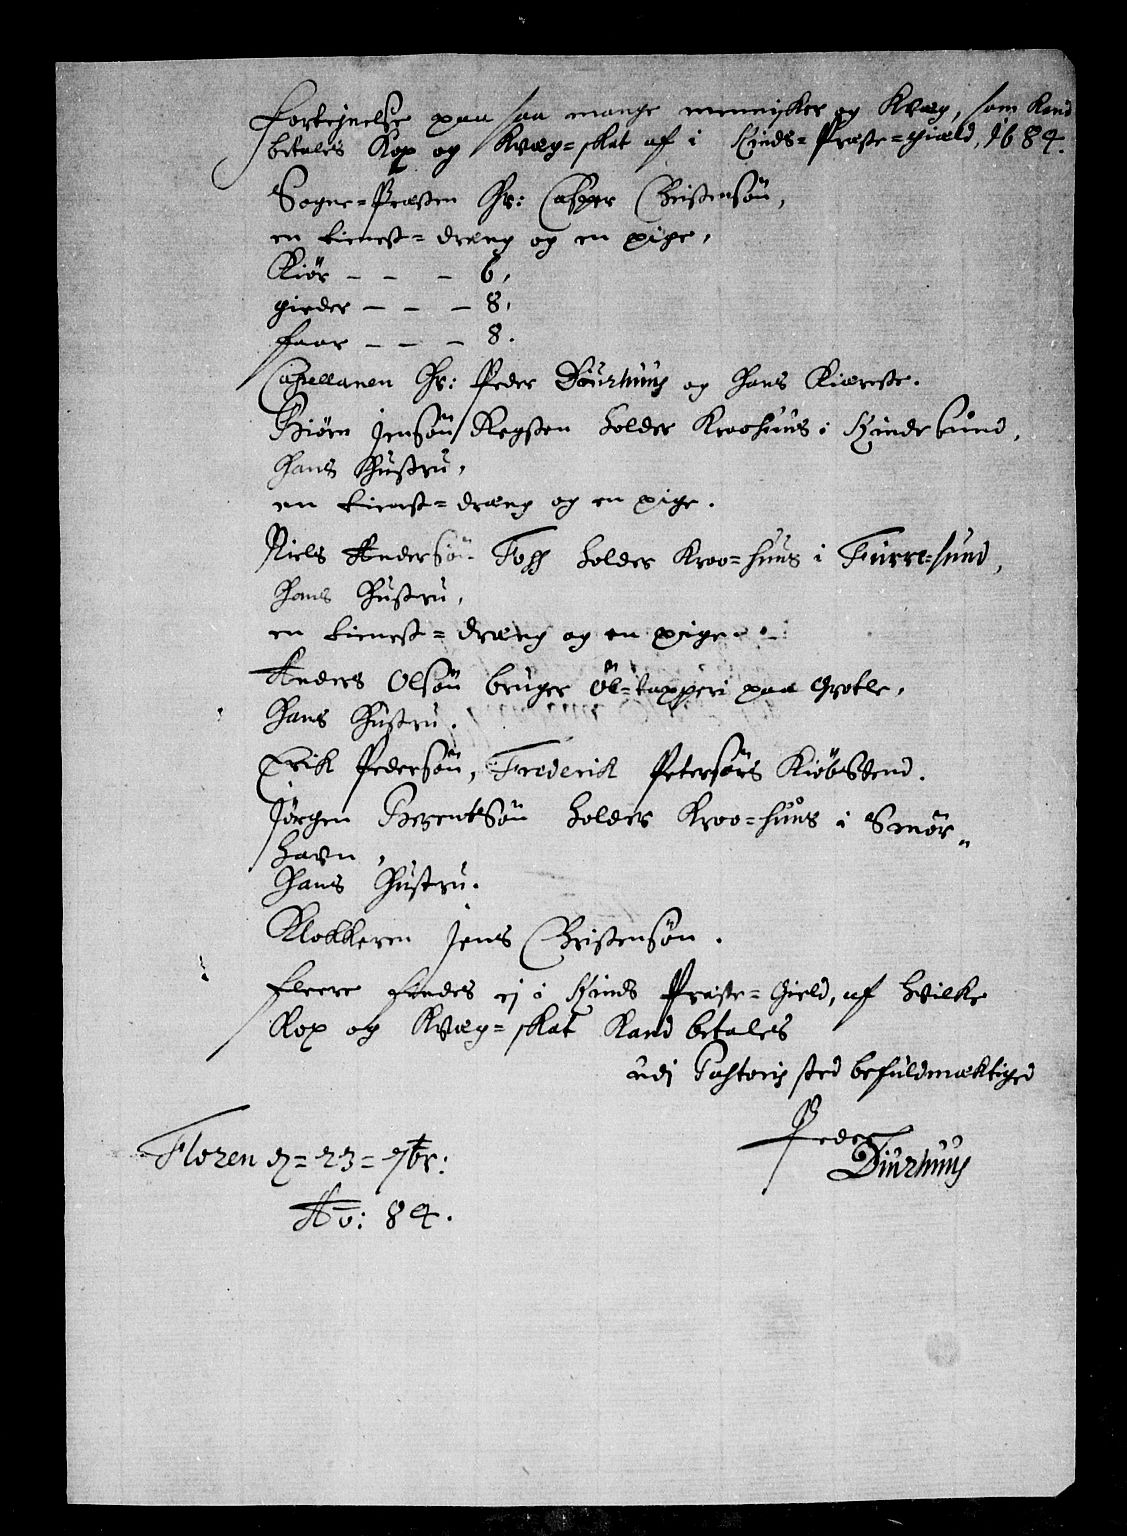 Fortejnelse paa saa mange mennisker og Kvæg, som Kand
betales Kop og Kvæg=skat af i Kinds=Præste=giæld, 1684.
Sogne=Præsten Hr: Casper Christensön,
en tienest=dræng og en pige,
Kiör – – – 6,
gieder – – – 8,
faar – – – 8.
Capellanen Hr: Peder Diurhuus og Hans Kiæreste.
Biörn Jensön holder Kroehuus i Kindesund,
Hans Hustru,
en tienest=dræng og en pige.
Niels Andersön Toff holder Kroo=huus i Furre=sund,
Hans Hustru,
en tienest=dræng og en pige
Anders Olsön bruger Öl=tapperi paa Grotle,
Hans Hustru.
Erik Pedersön, Frederik Petersörs Kiöbsvend.
Jörgen Berentsön holder Kroo=huus i Smör„
havn,
Hans Hustru.
Klokkeren Jens Christensön.
fleere findes ej i Kinds Præste=Gield, af hvilke
Kop og Kvæg=skat Kand betales
udj Pastoris sted befuldmæktiged
Peder
Diurhuus
Floren d= 23= 7br:
Ao: 84.